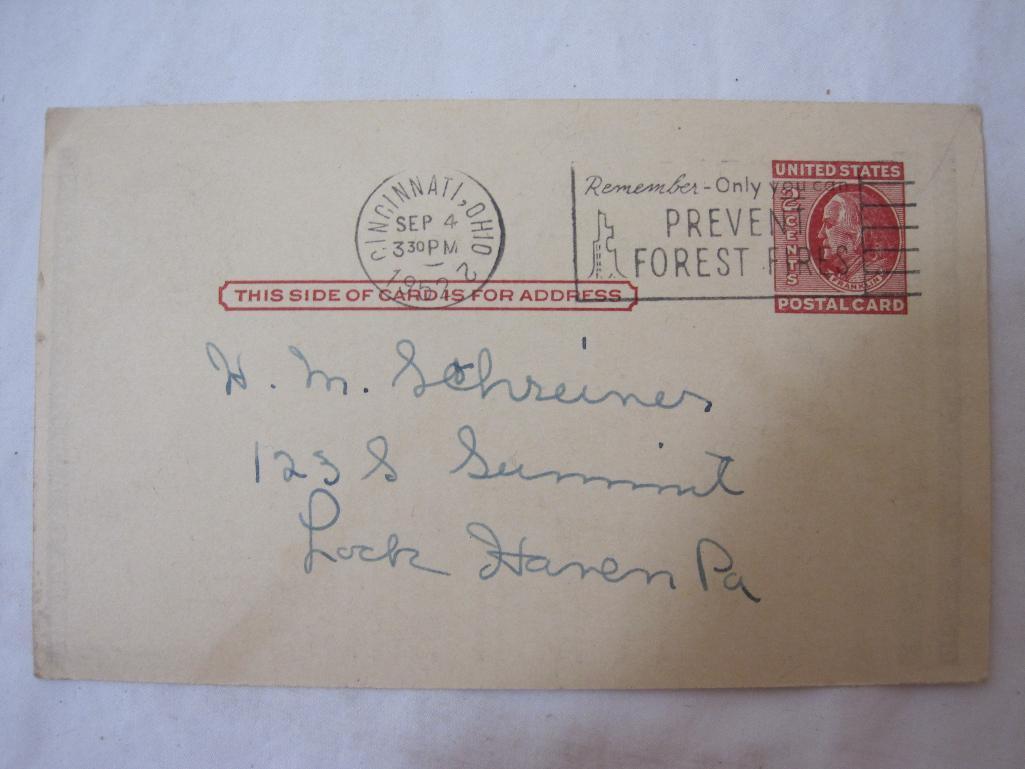 CINCINNATI, OHIO 2
SEP 4
3 30 PM
1952
Remember - Only you can
PREVENT
FOREST FIRES
UNITED STATES
2 CENTS
FRANKLIN
POSTAL CARD
THIS SIDE OF CARD IS FOR ADDRESS
H. M. Schreiner
123 S Summit
Lock Haven Pa